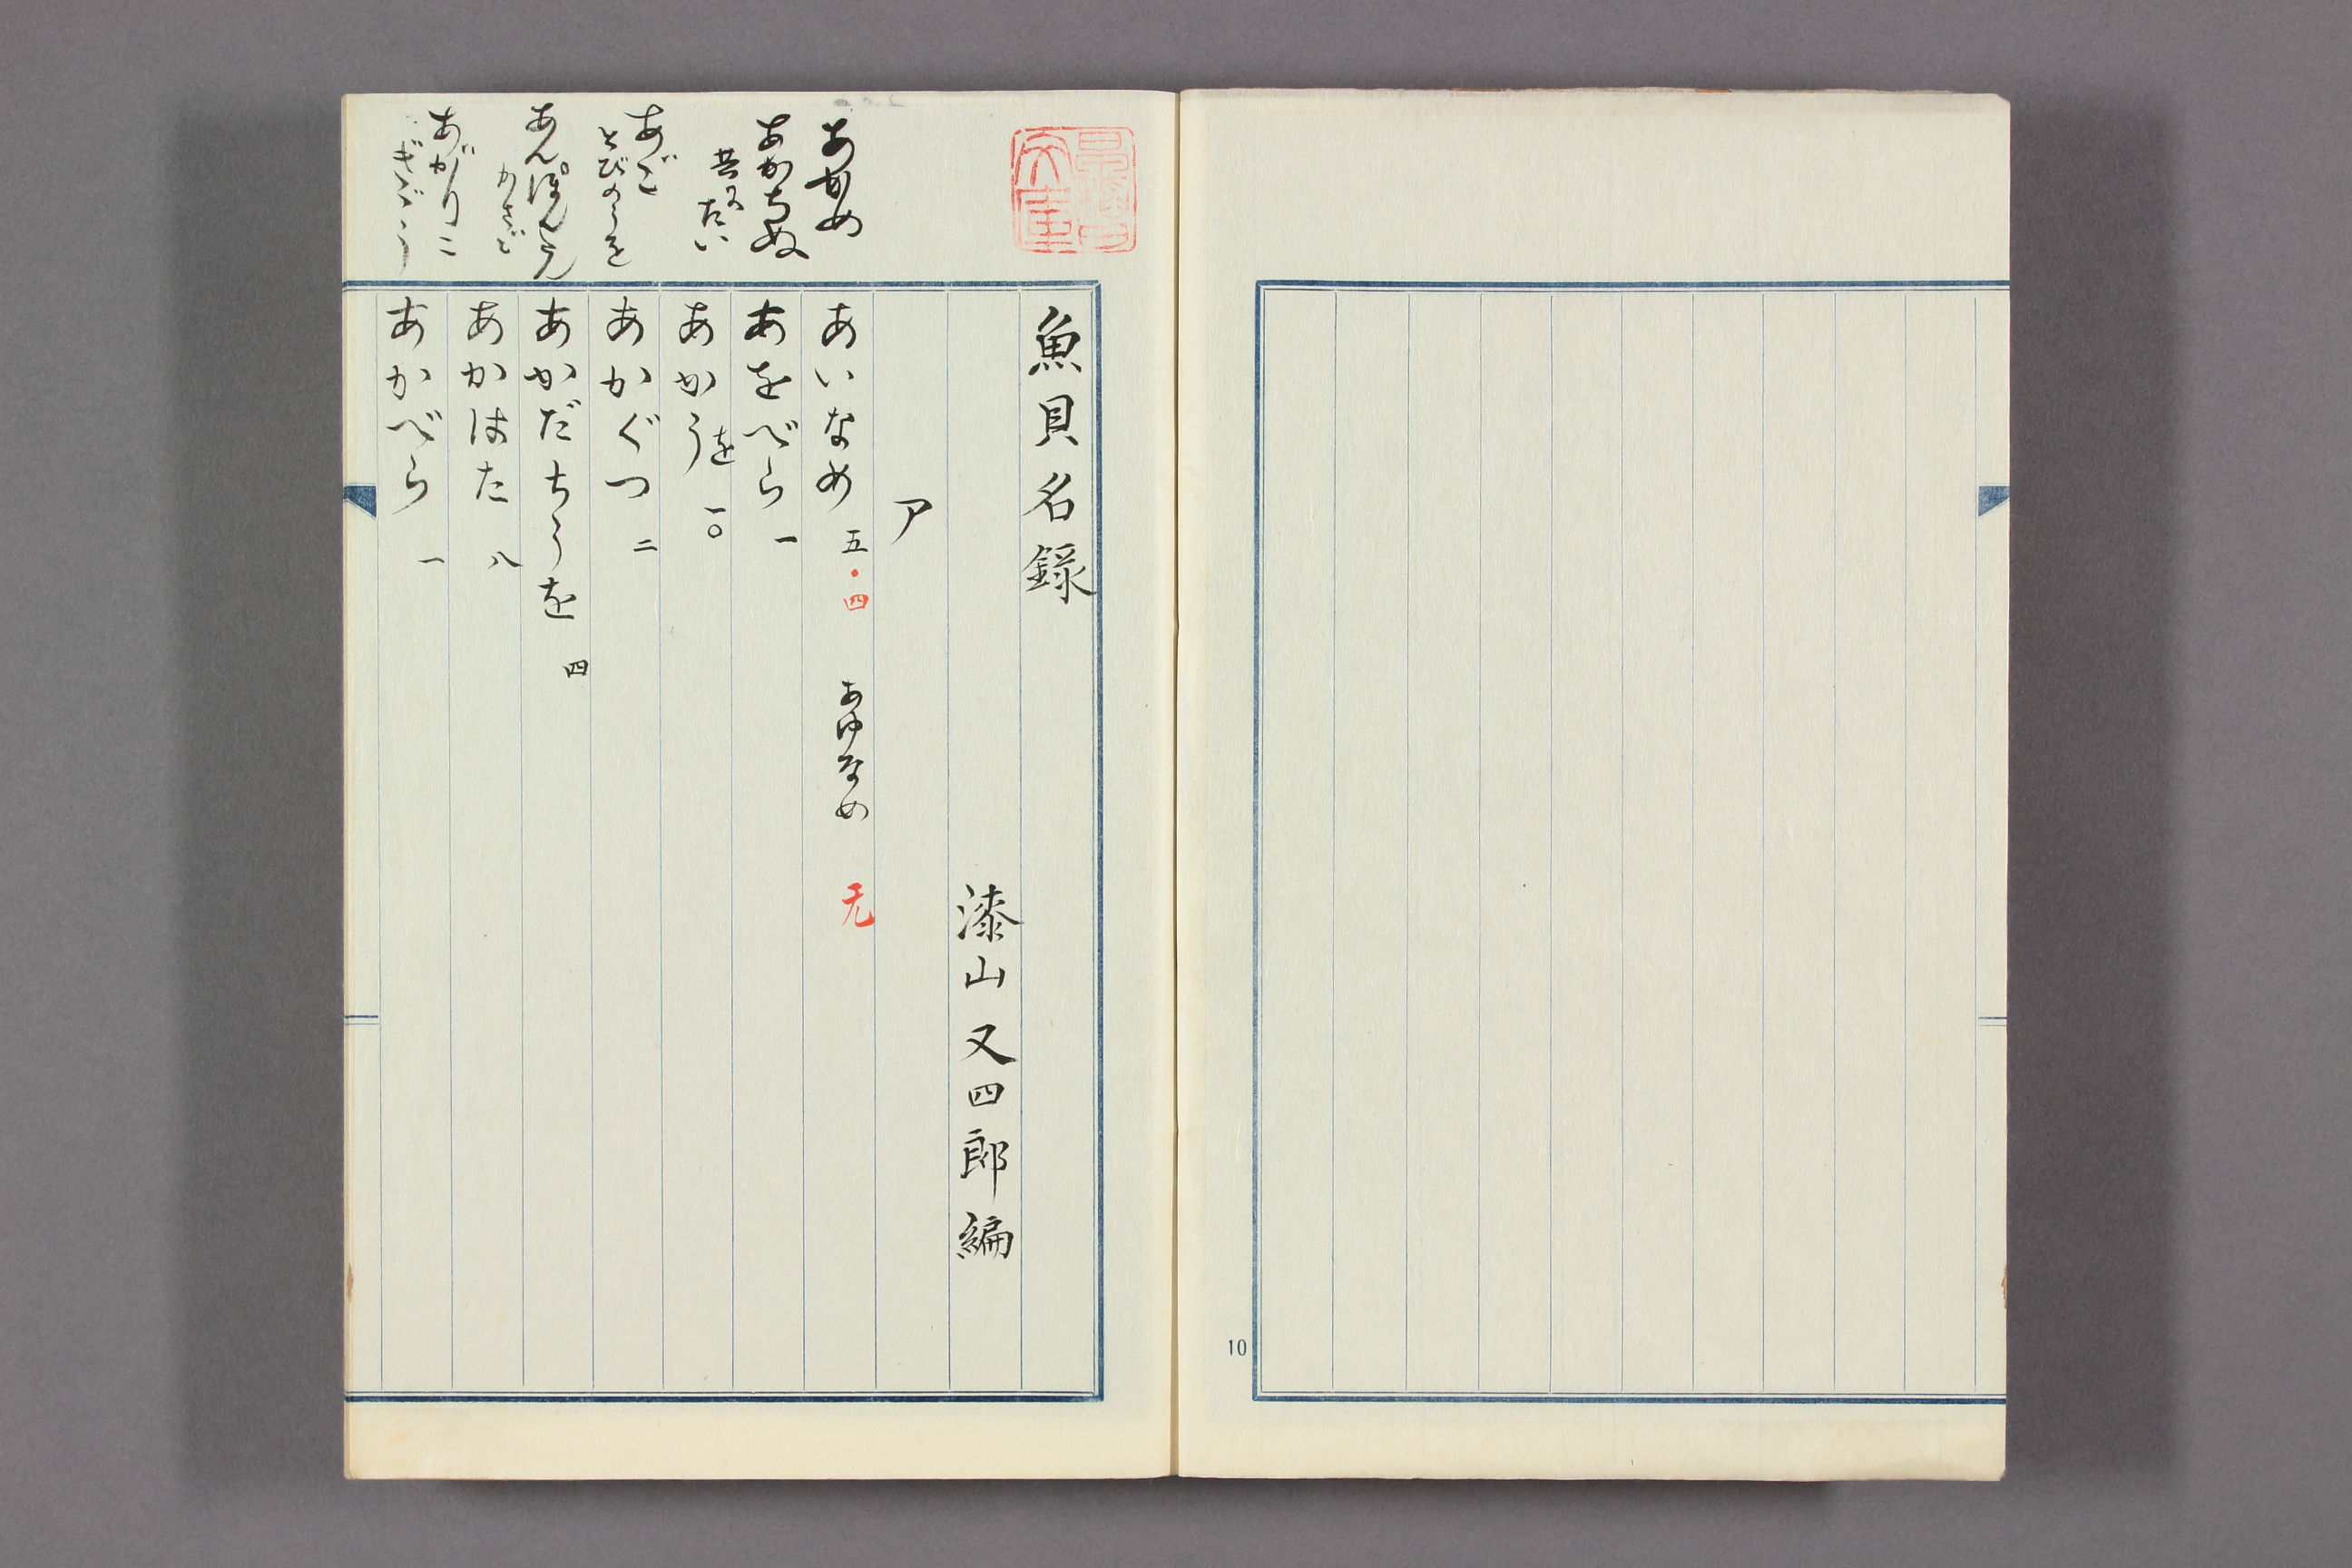 魚貝名録
漆山又四郎編
ア
あいなめ 五・四 あゆなめ 无
あをべら 一
あかうを 一〇
あかぐつ 二
あかだちうを 四
あかはた 八
あかべら 一
あかめ
あかちぬ
たい
あご
とびのうを
あんぽんたん
かさご
あがりこ
10